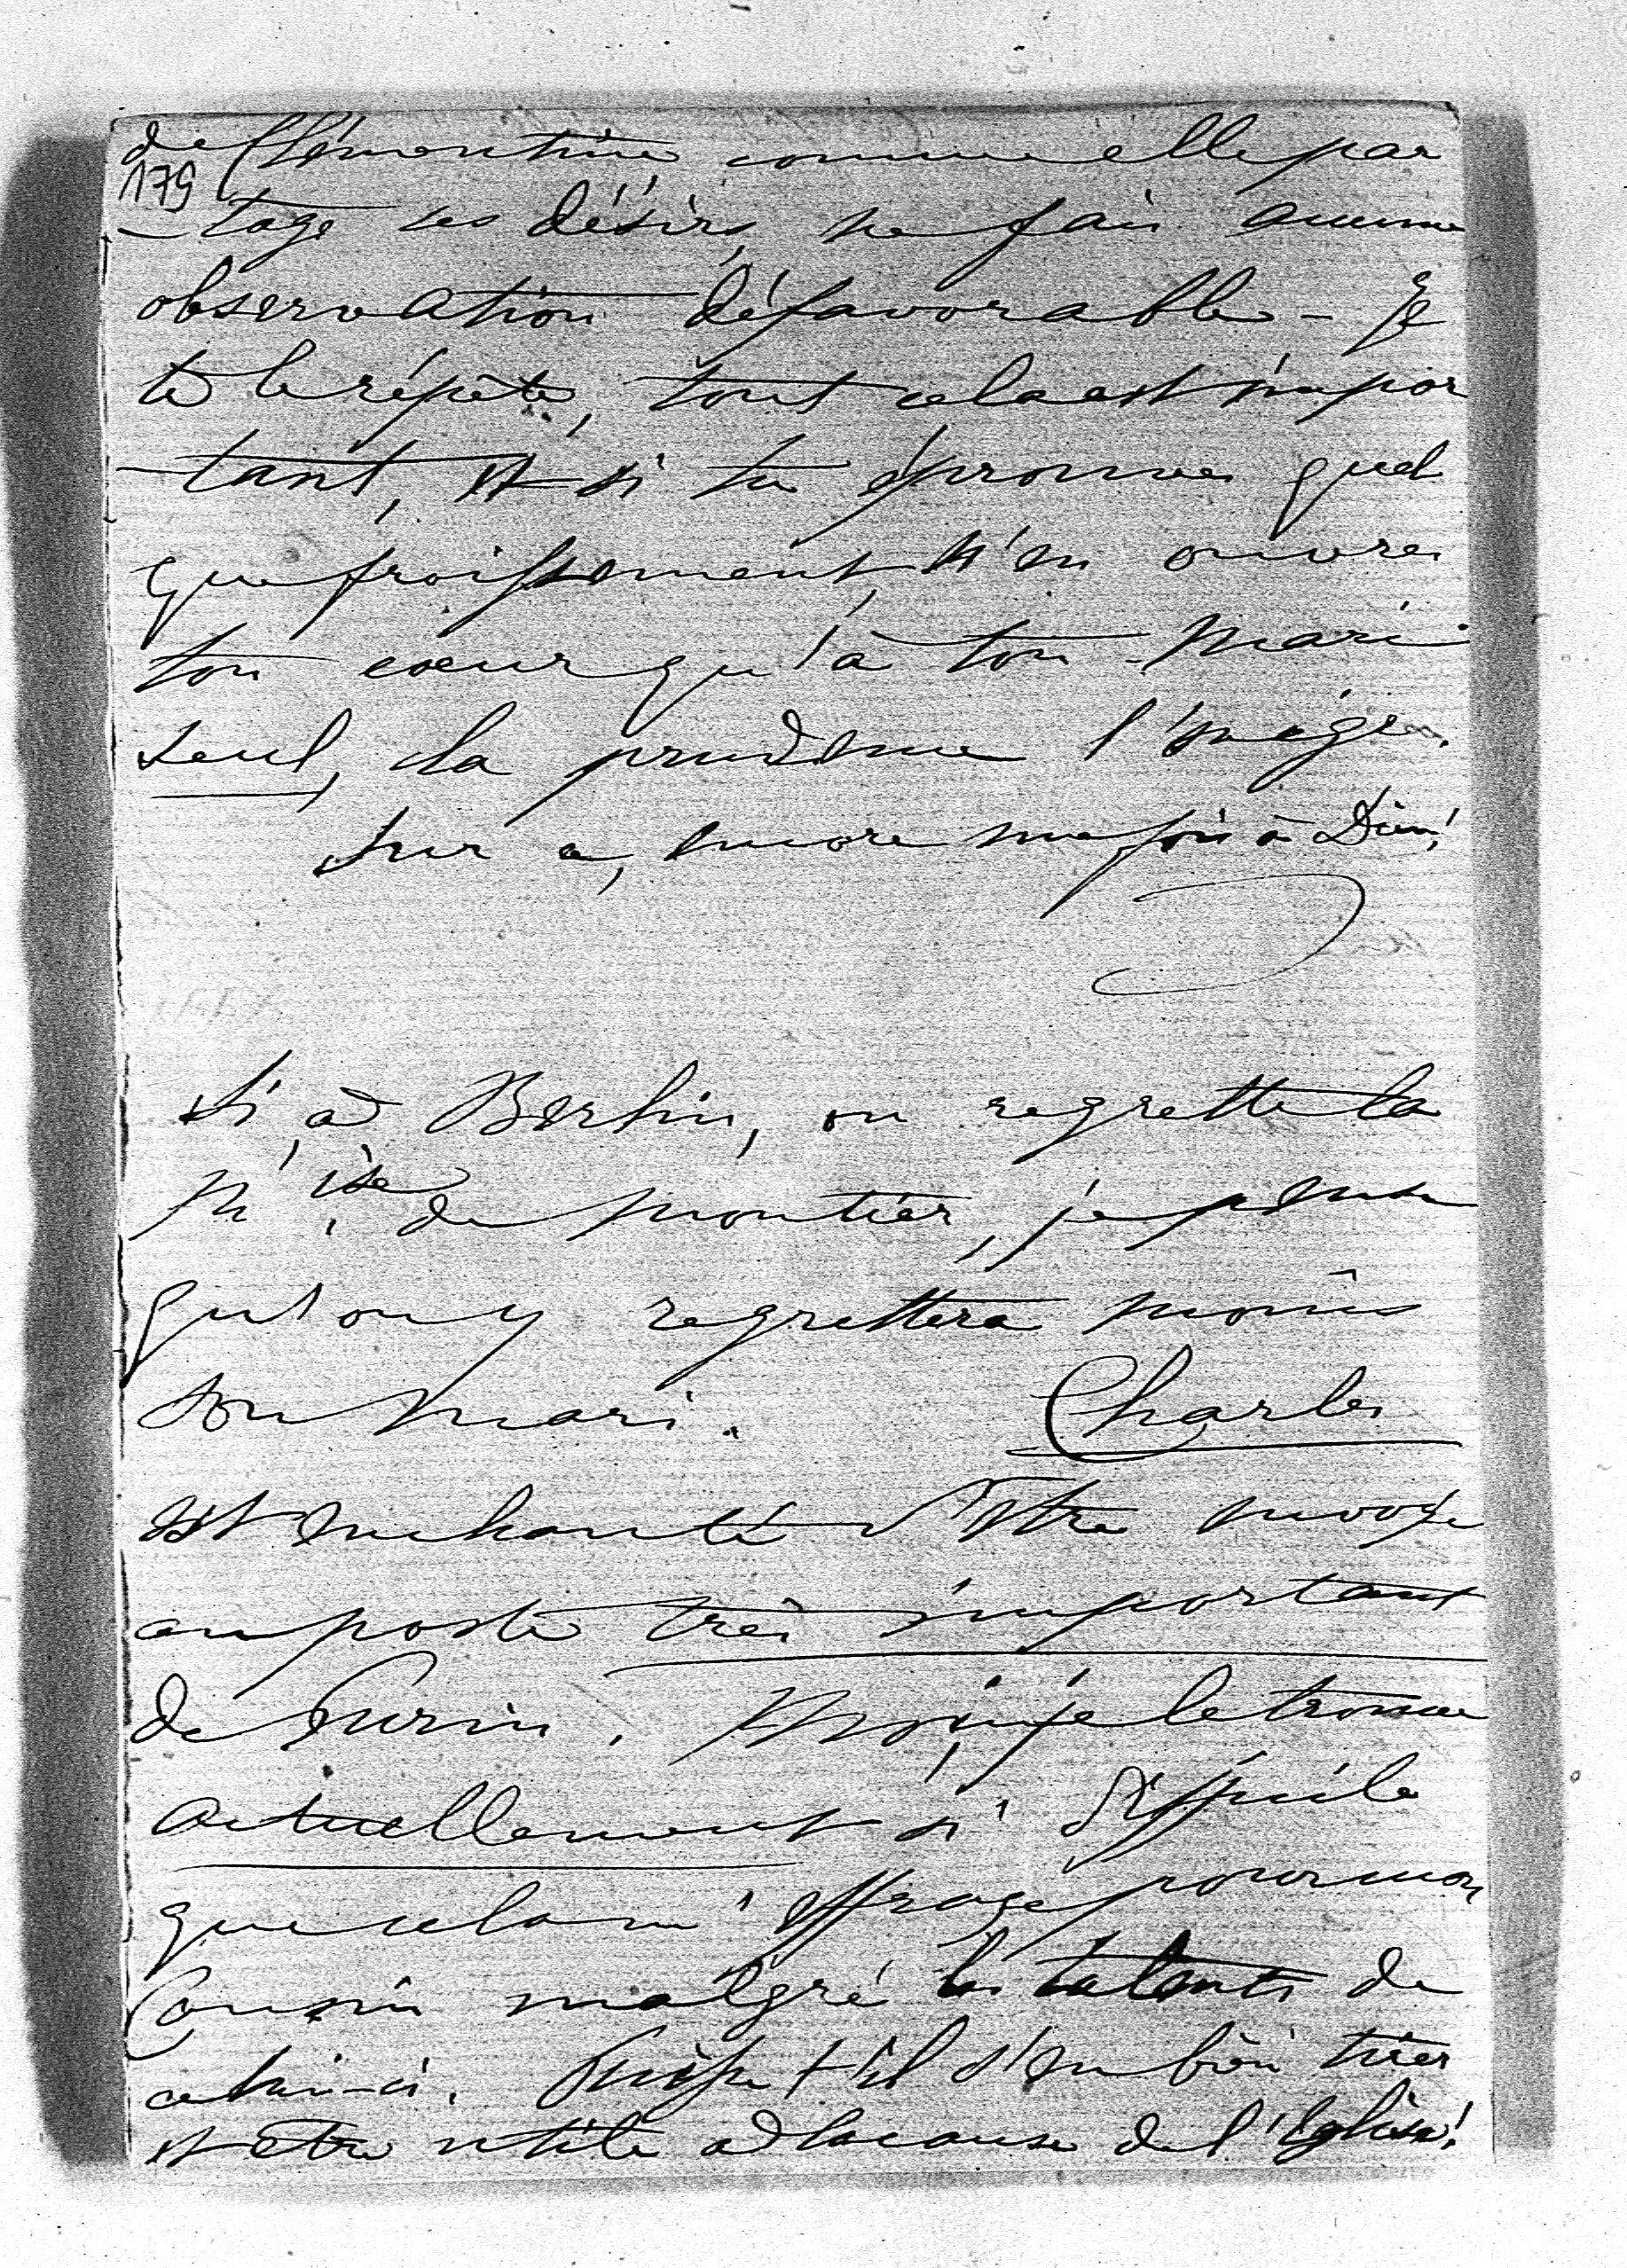 de Clémentine, comme elle par
179
-tage ses désirs, ne fais aucune
observation défavorable - Je
te le répète, tout cela est impor
-tant, et si tu éprouves quel
que froissement, n'en ouvres
ton coeur qu'à ton mari
seul, la prudence l'exige.
Sur ce, encore une fois à Dieu!
Si, à Berlin, on regrette la
M.ise de Moutier, je pense
qu'on y regrettera moins
son mari. Charles
est enchanté d'être envoyé
au poste très important
de Turin. Moi, je le trouve
actuellement si difficile
que cela m'effraye pour mon
Cousin malgré les talents de
celui-ci. Puisse t'il s'en bien tirer
et être utile à la cause de l'Eglise!